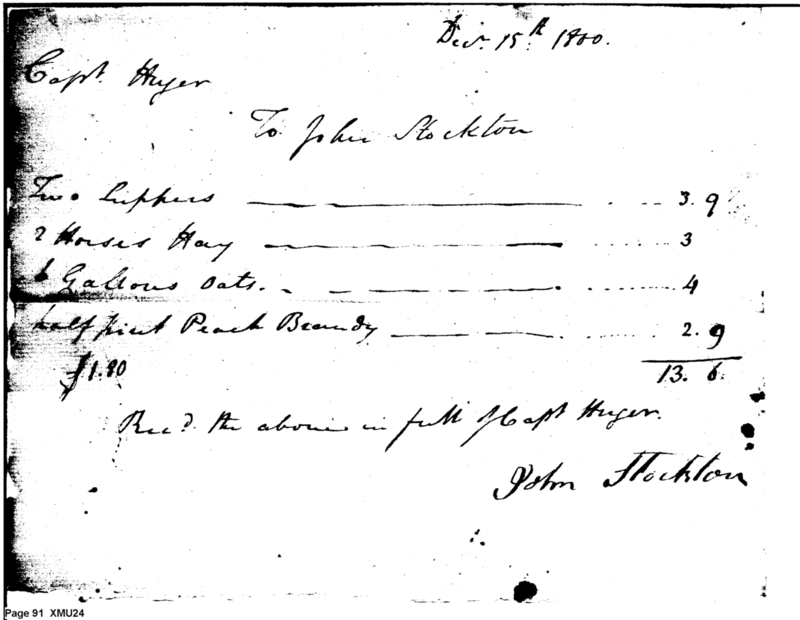 Decr. 15th 1800.
Capt. Huger
To John Stockton
Two Suppers 3. 9
2 Horses Hay 3
6 Gallons Oats. 4
half pint Peach Brandy 2. 9
$1.80 13. 6.
Recd. the above in full of Capt Huger.
John Stockton
Page 91 XMU24